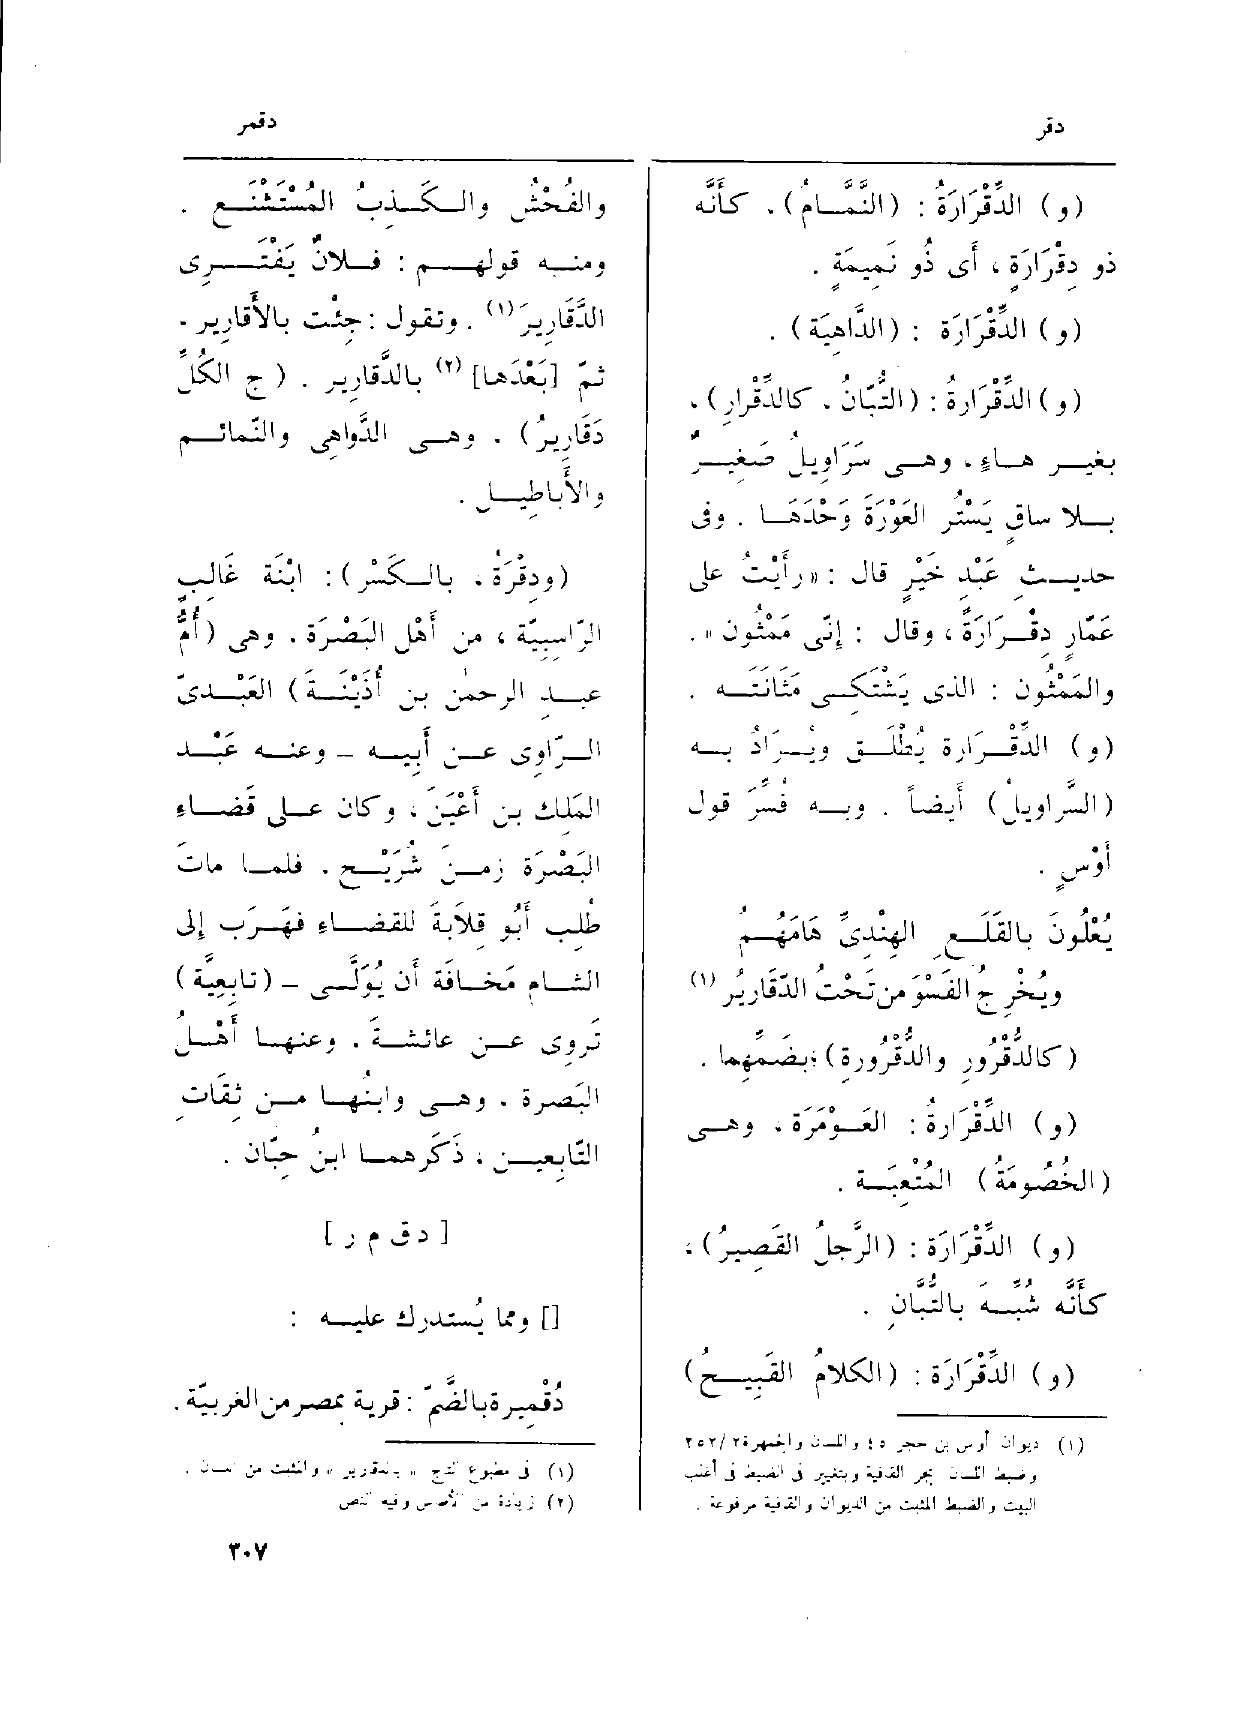 دقر
دقمر
(و) الدِّقْرَارَةُ : (النَّمَّامُ) ، كأَنَّه
ذو دِقْرَارَةٍ ، أَى ذُو نَمِيمَةٍ .
(و) الدِّقْرَارَة : (الدَّاهِيَة) .
(و) الدِّقْرَارةُ : (التُّبّانُ ، كالدِّقْرارِ) ،
بغيـر هـاءٍ ، وهـى سَرَاوِيلُ صَغيـرٌ
بـلا ساقٍ يَسْتُر العَوْرَةَ وَحْدَهَـا . وفى
حديـث عَبْدِ خَيْرٍ قال : «رأَيْتُ على
عَمّارٍ دِقْـرَارَةً ، وقال : إِنّى مَمْثُون » .
والمَمْثُون : الذى يَشْتَكِـى مَثَانَتَـه .
(و) الدِّقْـرَارة يُطْلَـق ويُـرَادُ بـه
(السَّراوِيلُ) أَيضاً . وبـه فُسِّرَ قول
أَوْسٍ .
يُعْلُونَ بالقَلَـعِ الهِنْدِىِّ هَامَهُـمُ
ويُخْرِجُ الفَسْوَ من تَحْتُ الدَّقَارِيرُ (١)
(كالدُّقْرُورِ والدُّقْرُورةِ) ، بضَمِّهِما .
(و) الدِّقْرَارةُ : العَـوْمَرَة ، وهـى
(الخُصُومَةُ) المُتْعِبَـة .
(و) الدِّقْرَارَة : (الرَّجلُ القَصِيرُ) ،
كأَنَّه شُبِّـه بالتُّبَّانِ .
(و) الدِّقْرَارَة : (الكلامُ القَبِيـحُ)
(١) ديوان أوس بن حجر ٤٥ واللسان والجمهرة ٢/٢٥٢
وضبط اللسان بجر القافية وبتغيير فى الضبط فى أغلب
البيت والضبط المثبت من الديوان والقافية مرفوعة .
والفُحْشُ والـكَـذِبُ المُسْتَشْنَـع .
ومنـه قولهـم : فـلانٌ يَفْتَـرِى
الدَّقَارِيرَ (١) . وتقول : جِئْت بالأَقارِيرِ .
ثمّ [بَعْدَها] (٢) بالدَّقارِيرِ . ( ج الكُلِّ
دَقَارِيرُ) . وهـى الدَّواهِى والنَّمائـم
والأَباطِيـل .
(ودِقْرَةُ ، بالـكَسْرِ) : ابْنَة غَالِبٍ
الرّاسِبِيّة ، من أَهْلِ البَصْرَة . وهى (أُمُّ
عبـدِ الرحمٰن بن أُذَيْنَـة) العَبْـدِىّ
الـرّاوِى عـن أَبِيـه – وعنـه عَبْـد
المَلِك بن أَعْيَنَ ، وكان عـلى قَضـاءِ
البَصْرَة زمـنَ شُرَيْـح . فلمـا ماتَ
طُلِب أَبُو قِلابَةَ للقضـاء فهَـرَب إلى
الشـام مَخـافَةَ أن يُوَلَّـى – (تابِعِيَّة)
تَروِى عـن عائشـةَ . وعنهـا أَهْـلُ
البَصرة . وهـى وابنُهـا مـن ثِقَاتِ
التّابِعيـن ، ذَكَرهمـا ابنُ حِبّان .
[ د ق م ر ]
[] ومما يُستدرك عليـه :
دُقْمِيرة بالضَّمّ : قرية بمصر من الغربيّة .
(١) فى مطبوع التاج « بالدقارير » والمثبت من اللسان .
(٢) زيادة من الأساس وفيه النص
٣٠٧